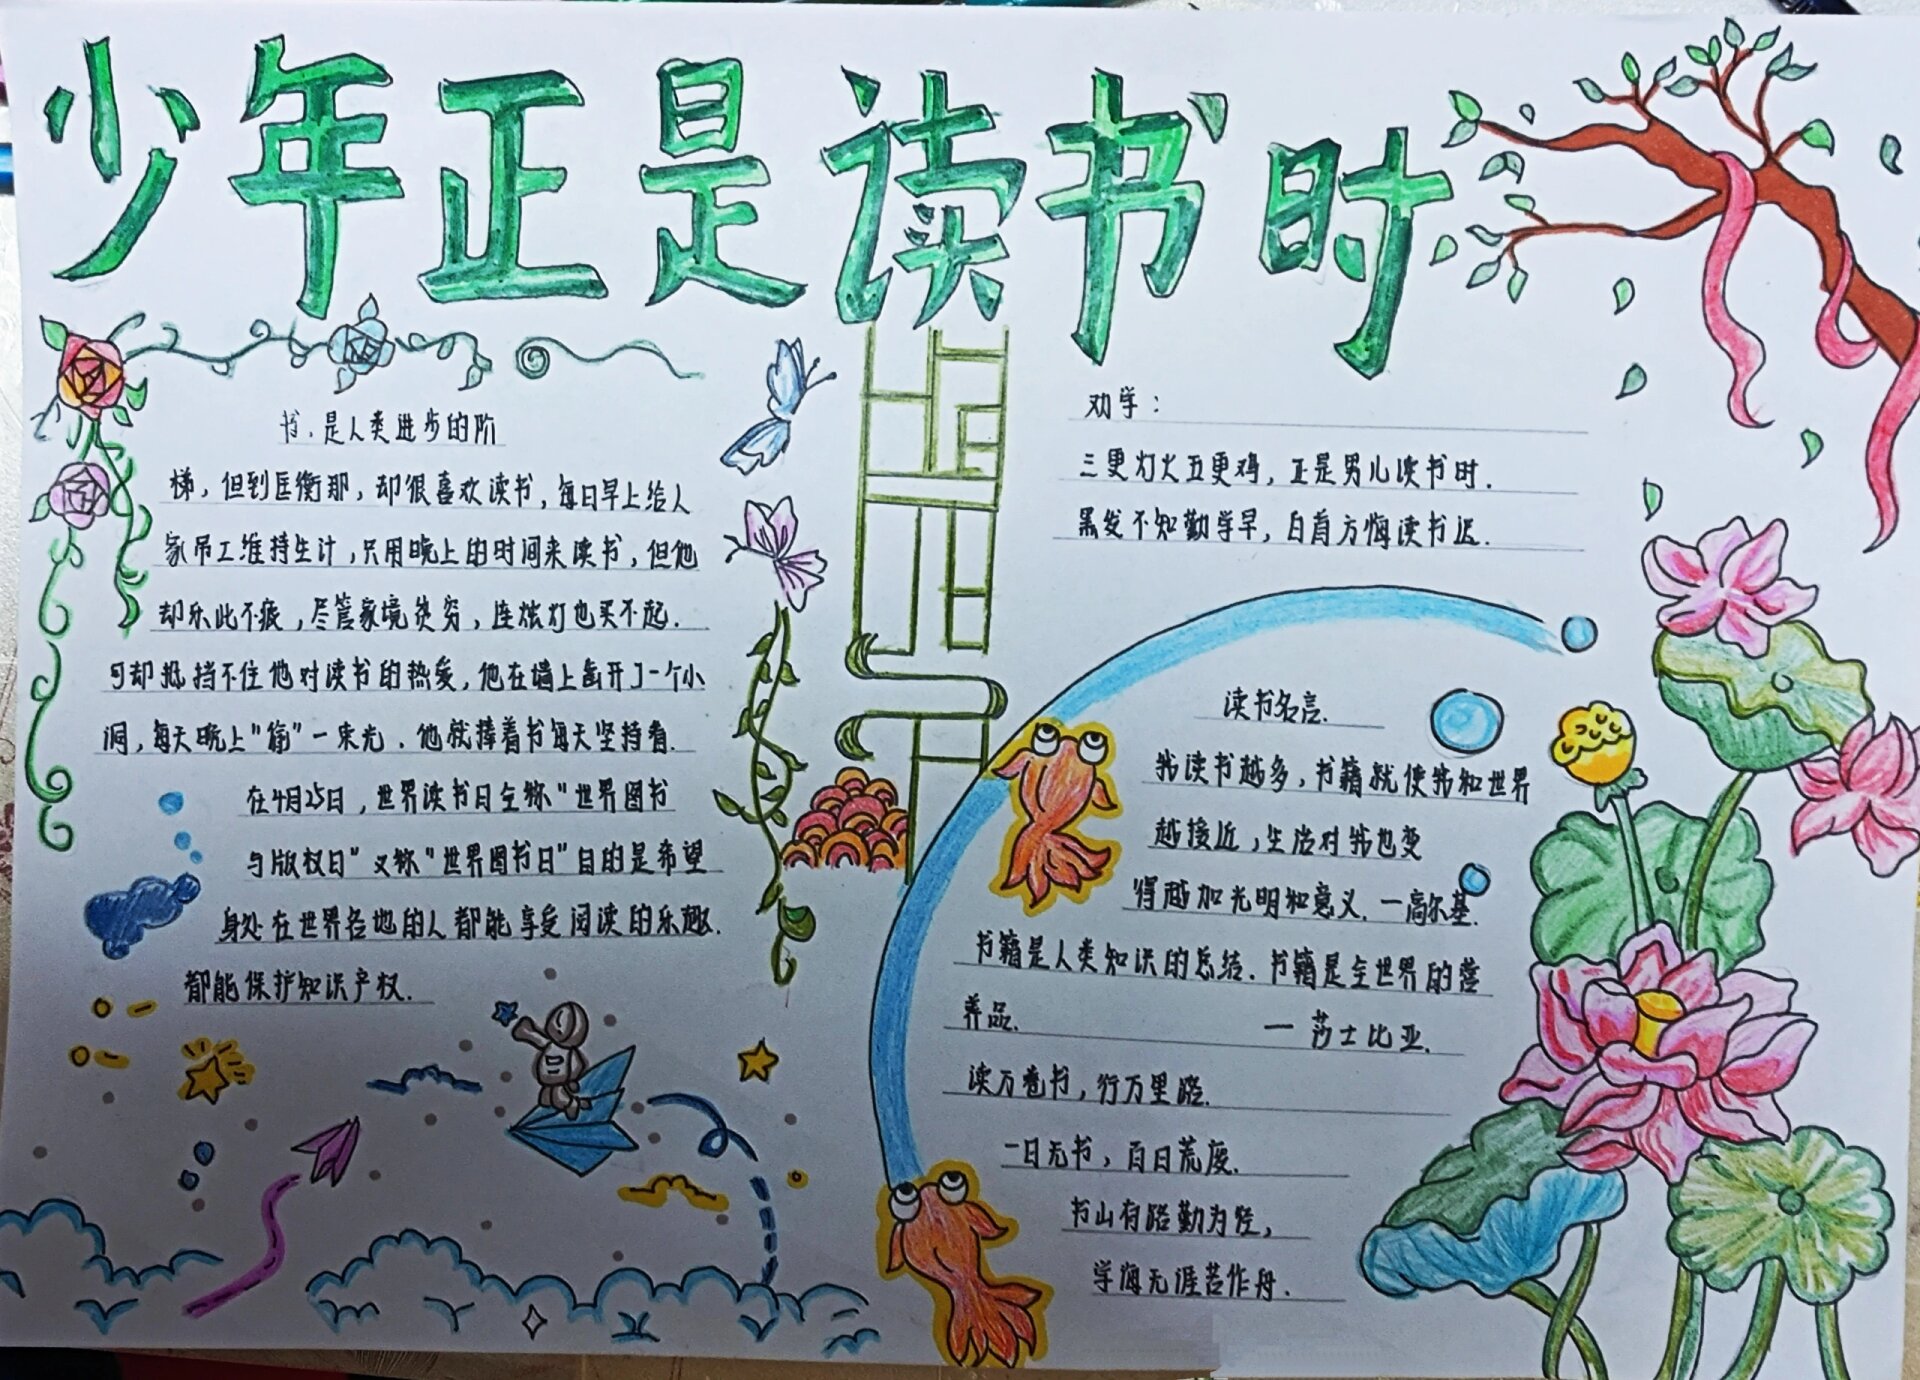 少年正是读书时
书，是人类进步的阶
梯，但到匡衡那，却很喜欢读书，每日早上给人
家吊工维持生计，只用晚上的时间来读书，但他
却乐此不疲，尽管家境贫穷，连烛灯也买不起.
可却抵挡不住他对读书的热爱，他在墙上凿开了一个小
洞，每天晚上“偷”一束光．他就捧着书每天坚持看.
在4月25日，世界读书日全称“世界图书
与版权日”又称“世界图书日”目的是希望
身处在世界各地的人都能享受阅读的乐趣.
都能保护知识产权.
劝学：
三更灯火五更鸡，正是男儿读书时.
黑发不知勤学早，白首方悔读书迟.
读书名言.
我读书越多，书籍就使我和世界
越接近，生活对我也变
得越加光明和意义.一高尔基.
书籍是人类知识的总结．书籍是全世界的营
养品. 一 莎士比亚.
读万卷书，行万里路.
一日无书，百日荒废.
书山有路勤为径，
学海无涯苦作舟.